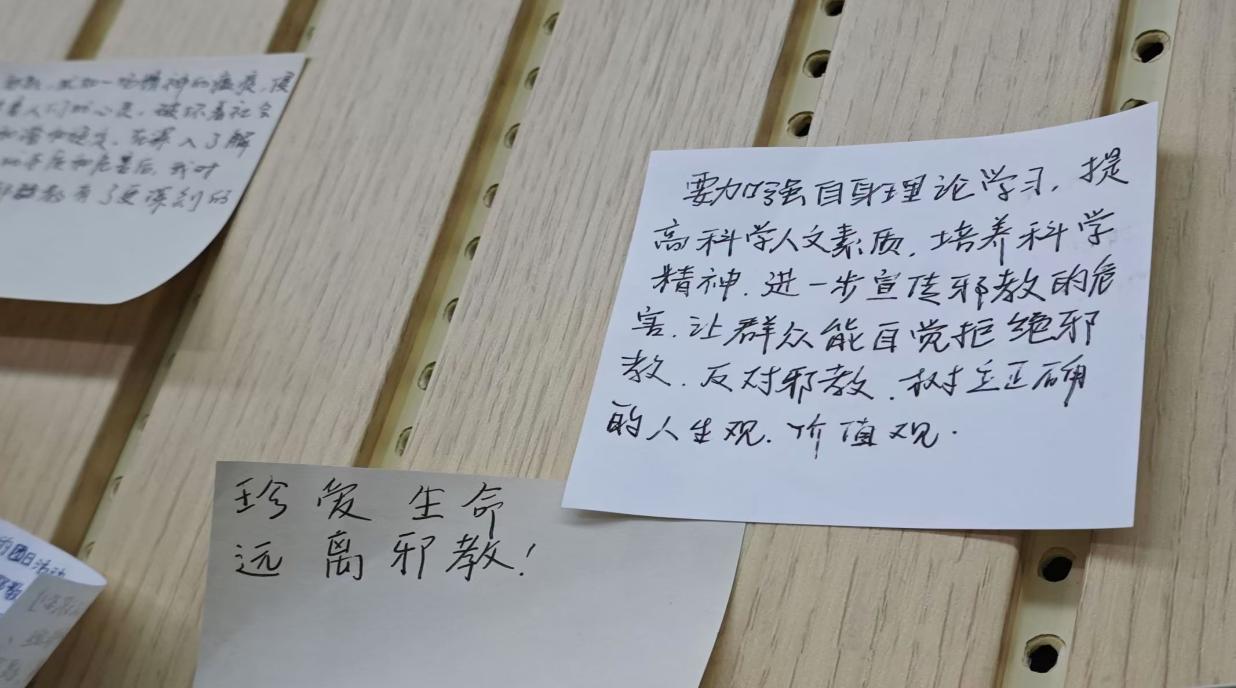 精神的瘟疫,侵
着人们的心灵,破坏着社会
深入了解
和危害后,我对
有了更深刻的
要加强自身理论学习,提
高科学人文素质,培养科学
精神.进一步宣传邪教的危
害.让群众能自觉拒绝邪
教.反对邪教.树立正确
的人生观.价值观.
珍爱生命
远离邪教!
团日活动